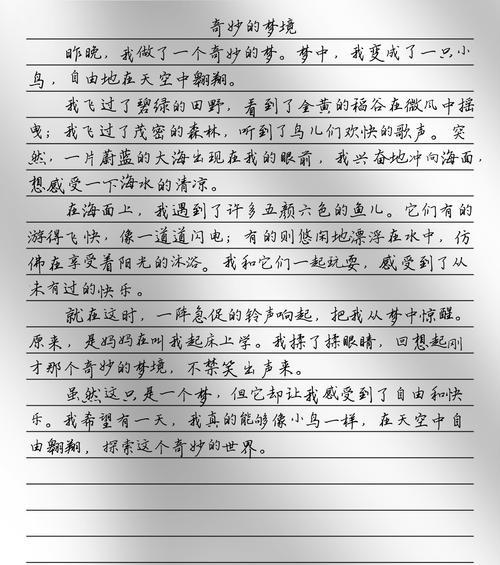 奇妙的梦境
昨晚，我做了一个奇妙的梦。梦中，我变成了一只小
鸟，自由地在天空中翱翔。
我飞过了碧绿的田野，看到了金黄的稻谷在微风中摇
曳；我飞过了茂密的森林，听到了鸟儿们欢快的歌声。突
然，一片蔚蓝的大海出现在我的眼前，我兴奋地冲向海面，
想感受一下海水的清凉。
在海面上，我遇到了许多五颜六色的鱼儿。它们有的
游得飞快，像一道道闪电；有的则悠闲地漂浮在水中，仿
佛在享受着阳光的沐浴。我和它们一起玩耍，感受到了从
未有过的快乐。
就在这时，一阵急促的铃声响起，把我从梦中惊醒。
原来，是妈妈在叫我起床上学。我揉了揉眼睛，回想起刚
才那个奇妙的梦境，不禁笑出声来。
虽然这只是一个梦，但它却让我感受到了自由和快
乐。我希望有一天，我真的能够像小鸟一样，在天空中自
由翱翔，探索这个奇妙的世界。